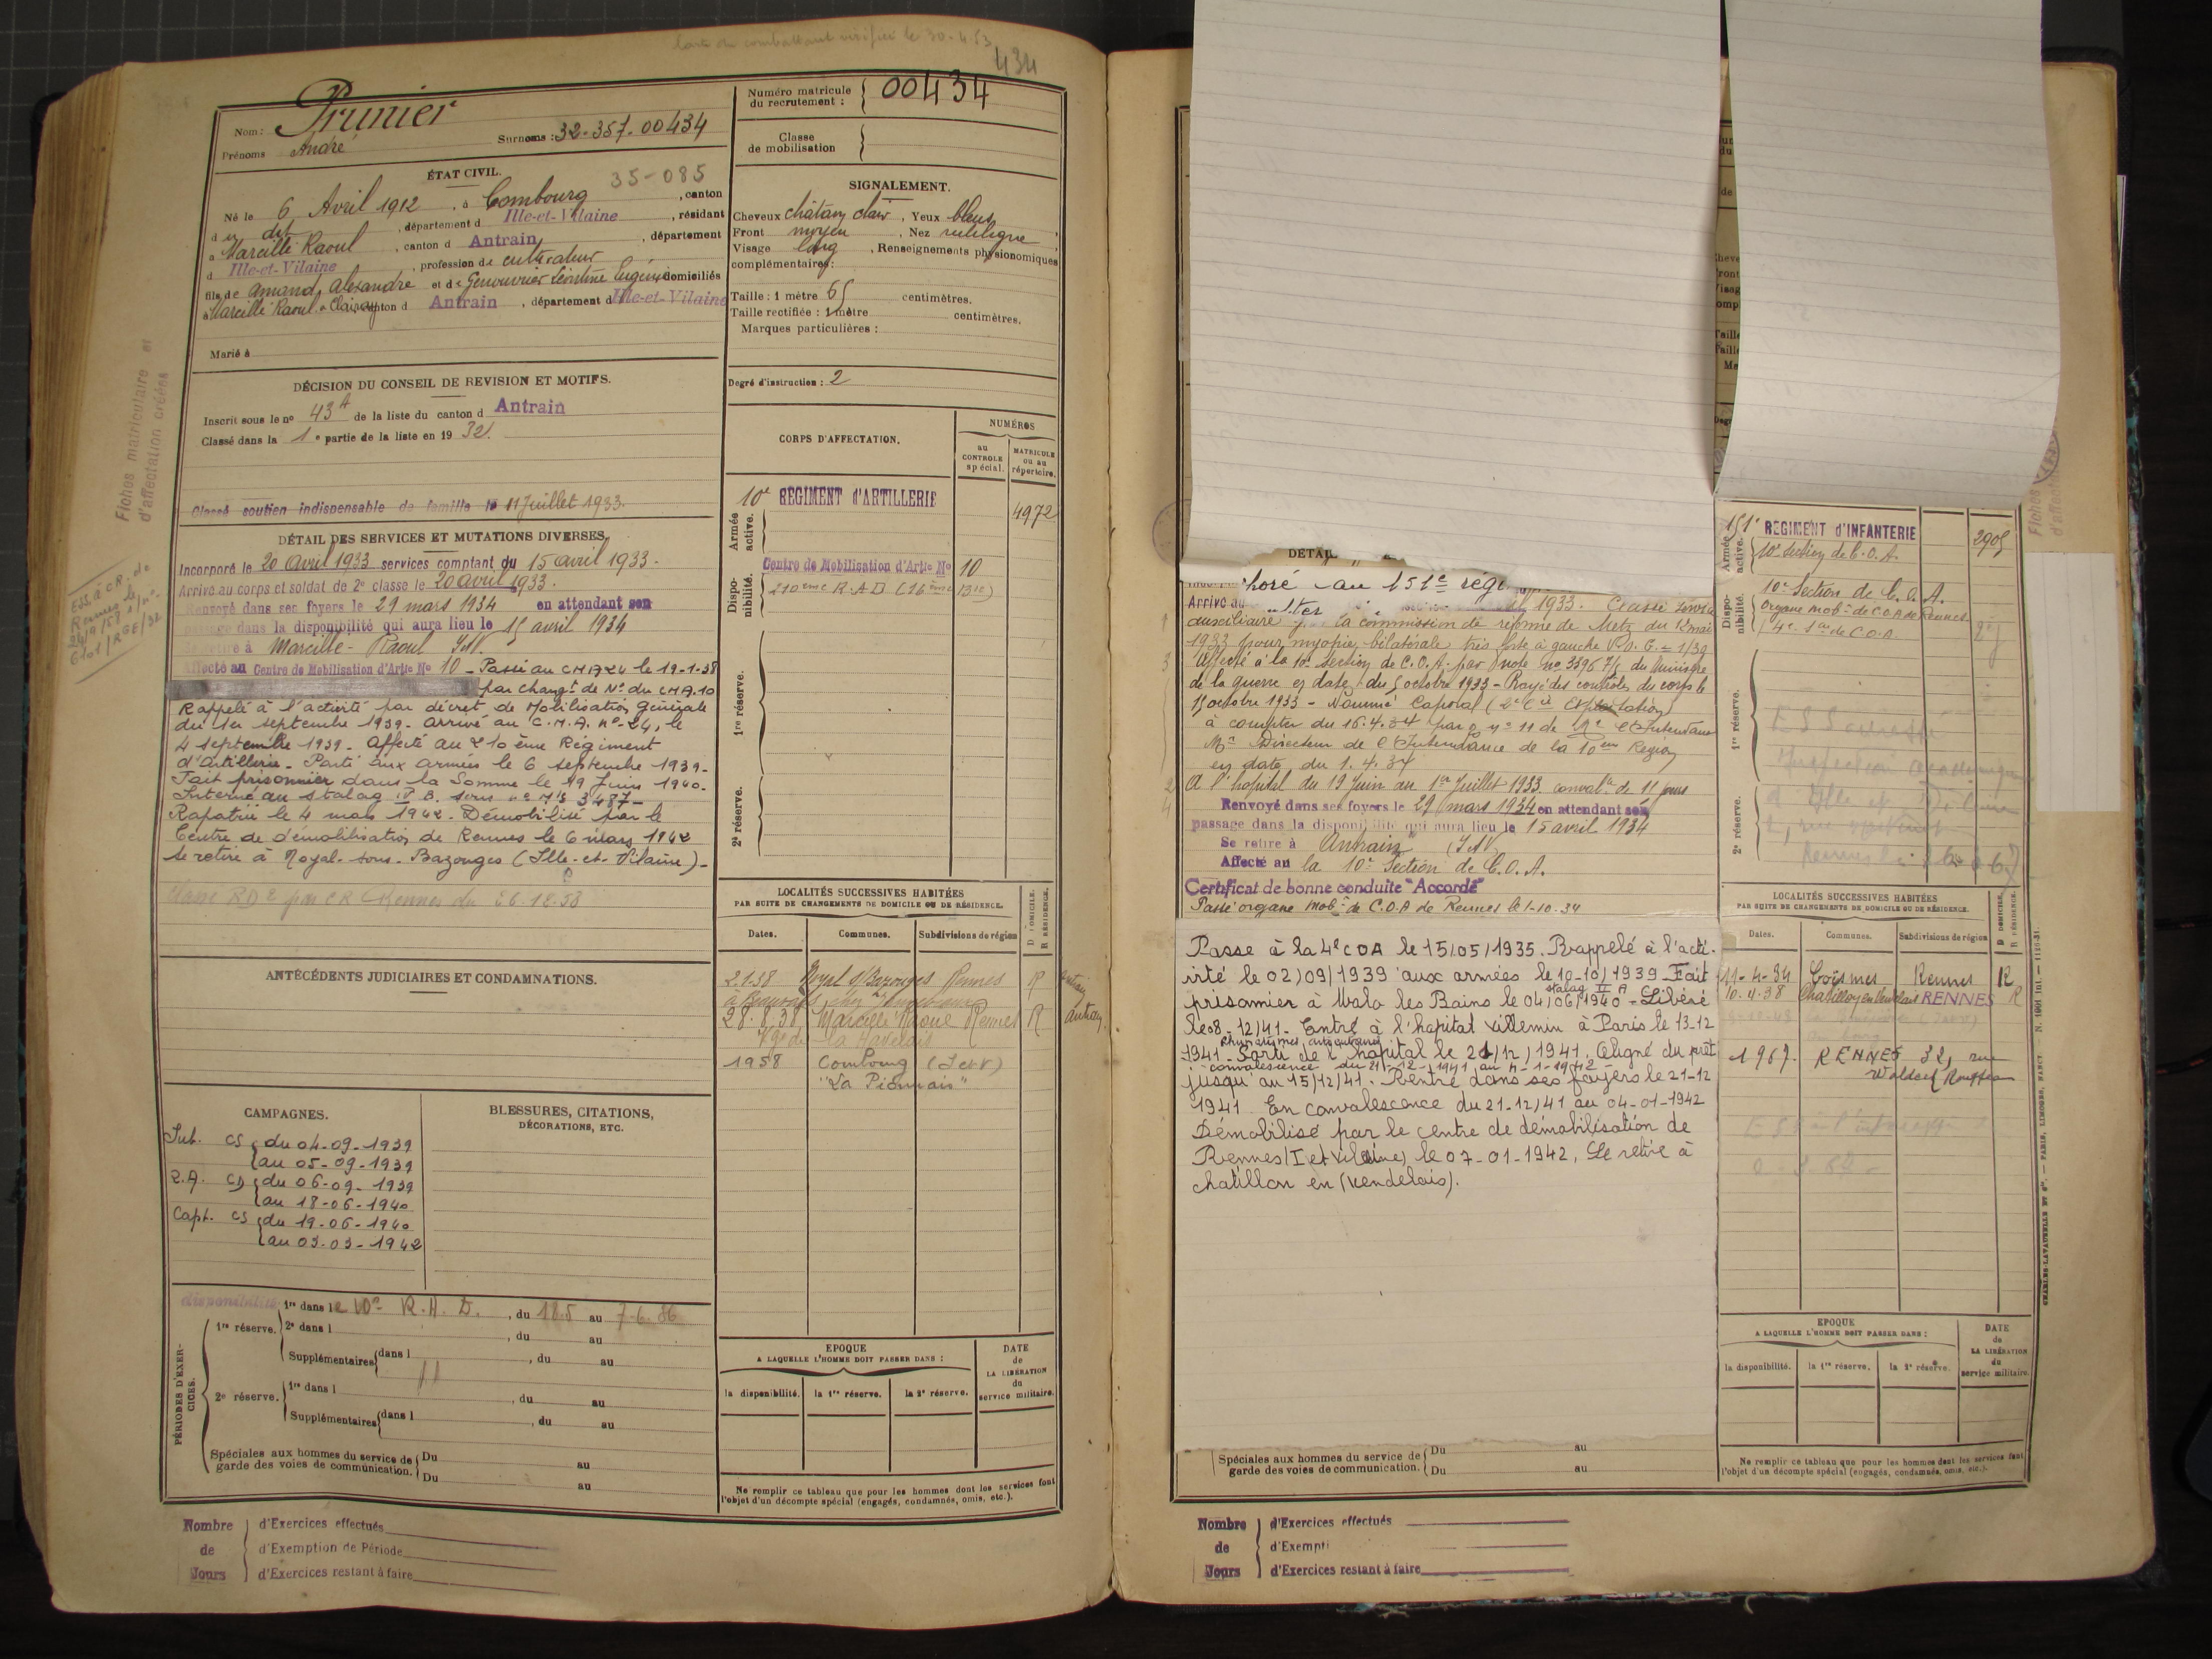 Carte du combattant vérifiée le 30-4-53
434
Nom : Prunier
Surnoms : 32-357-00434
Prénoms André
Numéro matricule du recrutement : 00434
Classe de mobilisation
ÉTAT CIVIL.
35-085
Né le 6 Avril 1912, à Combourg, canton
d dit, département d Ille-et-Vilaine, résidant
à Marcillé Raoul, canton d Antrain, département
d Ille-et-Vilaine, profession de cultivateur
fils de Amand, Alexandre et de Genouvrier Léontine Eugénie domiciliés
à Marcillé Raoul, canton d Antrain, département d Ille-et-Vilaine
Marié à
SIGNALEMENT.
Cheveux châtain clair, Yeux bleus
Front moyen, Nez rectiligne
Visage long, Renseignements physionomiques
complémentaires :
Taille : 1 mètre 65 centimètres.
Taille rectifiée : 1 mètre centimètres.
Marques particulières :
Degré d'instruction : 2
DÉCISION DU CONSEIL DE REVISION ET MOTIFS.
Inscrit sous le no 43A de la liste du canton d Antrain
Classé dans la 1e partie de la liste en 1932.
Classé soutien indispensable de famille le 11 Juillet 1933.
DÉTAIL DES SERVICES ET MUTATIONS DIVERSES.
Incorporé le 20 Avril 1933 services comptant du 15 avril 1933.
Arrivé au corps et soldat de 2e classe le 20 avril 1933.
Renvoyé dans ses foyers le 29 mars 1934 en attendant son
passage dans la disponibilité qui aura lieu le 15 avril 1934
Se retire à Marcillé-Raoul I&V.
Affecté au Centre de Mobilisation d'Artie No 10 - Passé au CMA 24 le 19-1-38
par changt de No du CMA.10
Rappelé à l'activité par décret de Mobilisation Générale
du 1er septembre 1939. Arrivé au C.M.A. no 24, le
4 septembre 1939. Affecté au 210ème Régiment
d'Artillerie. Parti aux armées le 6 septembre 1939-
Fait prisonnier dans la Somme le 19 Juin 1940-
Interné au stalag IV B. sous no Mle 3487-
Rapatrié le 4 mars 1942. Démobilisé par le
Centre de démobilisation de Rennes le 6 mars 1942
se retire à Noyal-sous-Bazouges (Ille-et-Vilaine)-
Classé RD2 par CR Rennes du 26.12.58
Fiches matriculaire et
d'affectation créées
CORPS D'AFFECTATION.
NUMÉROS
AU CONTROLE spécial.
MATRICULE OU AU répertoire.
Armée active.
10e REGIMENT d'ARTILLERIE
4972
Disponibilité.
Centre de Mobilisation d'Artie No 10
210ème R.A.D (16ème Bie)
1re réserve.
2e réserve.
ANTÉCÉDENTS JUDICIAIRES ET CONDAMNATIONS.
LOCALITÉS SUCCESSIVES HABITÉES
PAR SUITE DE CHANGEMENTS DE DOMICILE OU DE RÉSIDENCE.
D DOMICILE. R RÉSIDENCE.
Dates. Communes. Subdivisions de région
2.1.38 Noyal s/Bazouges Rennes R
28.8.38 Marcillé Raoul Rennes R
1958 Combourg (I et V)
"La Pionnais"
CAMPAGNES.
CS du 04-09-1939
au 05-09-1939
du 06-09-1939
au 18-06-1940
Capt. CS du 19-06-1940
au 03-03-1942
BLESSURES, CITATIONS, DÉCORATIONS, ETC.
PÉRIODES D'EXERCICES.
disponibilité
1re réserve.
1re dans le 10e R.A.D., du 18.5 au 7.6.36
2e dans l , du au
Supplémentaires dans l , du au
2e réserve.
1re dans l , du au
Supplémentaires dans l , du au
Spéciales aux hommes du service de garde des voies de communication.
Du au
Du au
EPOQUE
A LAQUELLE L'HOMME DOIT PASSER DANS :
la disponibilité. la 1re réserve. la 2e réserve.
DATE de LA LIBÉRATION du service militaire.
Ne remplir ce tableau que pour les hommes dont les services font
l'objet d'un décompte spécial (engagés, condamnés, omis, etc.).
Nombre de Jours
d'Exercices effectués
d'Exemption de Période
d'Exercices restant à faire
DÉTAIL
au 151e
Arrivé au 1933. Classé service
auxiliaire la commission de réforme de Metz du 12 mai
1933 pour myopie bilatérale très forte à gauche V.O.G. = 1/39
Affecté à la 10e Section de C.O.A. par note no 3396 7/5 du Ministre
de la guerre en date du 5 octobre 1933 - Rayé des contrôles du corps le
15 octobre 1933 - Nommé Caporal (2e Cie Exploitation)
à compter du 16.4.34 par o. no 11 de Mr l'Intendant
Mre Directeur de l'Intendance de la 10ème Région
en date du 1.4.34
A l'hôpital du 19 Juin au 1er Juillet 1933 convalce de 11 jours
Renvoyé dans ses foyers le 29 mars 1934 en attendant son
passage dans la disponibilité qui aura lieu le 15 avril 1934
Se retire à Antrain (I&V)
Affecté au la 10e Section de C.O.A.
Certificat de bonne conduite "Accordé"
Passé organe mobon de C.O.A de Rennes le 1-10-34
Passe à la 4e COA le 15/05/1935. Rappelé à l'acti-
vité le 02/09/1939 aux armées le 10-10/1939. Fait
stalag II A
prisonnier à Malo les Bains le 04/06/1940 - Libéré
le 08-12/41 - Entré à l'hopital Villemin à Paris le 13-12
1941 - Sorti de l'hopital le 21/12/1941. Aligné du prêt
convalescence du 21-12-1941 au 4-1-1942
jusqu'au 15/12/41. Rentré dans ses foyers le 21-12
1941. En convalescence du 21-12/41 au 04-01-1942
Démobilisé par le centre de démobilisation de
Rennes (I et Vilaine) le 07-01-1942. Se retire à
chatillon en (Vendelais).
151e REGIMENT d'INFANTERIE
2905
Armée active.
10e Section de C.O.A.
Disponibilité.
10e Section de C.O.A.
Organe Mobon de C.O.A de Rennes
4e Son de C.O.A
1re réserve.
2e réserve.
LOCALITÉS SUCCESSIVES HABITÉES
PAR SUITE DE CHANGEMENTS DE DOMICILE OU DE RÉSIDENCE.
D DOMICILE. R RÉSIDENCE.
Dates. Communes. Subdivisions de région
11-4-34 Coësmes Rennes R
10.4.38 Chatillon en Vendelais RENNES R
1967. RENNES 32, rue
Waldeck Rousseau
EPOQUE
A LAQUELLE L'HOMME DOIT PASSER DANS :
la disponibilité. la 1re réserve. la 2e réserve.
DATE de LA LIBÉRATION du service militaire.
Spéciales aux hommes du service de garde des voies de communication.
Du au
Du au
Ne remplir ce tableau que pour les hommes dont les services font
l'objet d'un décompte spécial (engagés, condamnés, omis, etc.).
Nombre de Jours
d'Exercices effectués
d'Exempti
d'Exercices restant à faire
CHARLES-LAVAUZELLE ET Cie. — PARIS, LIMOGES, NANCY.